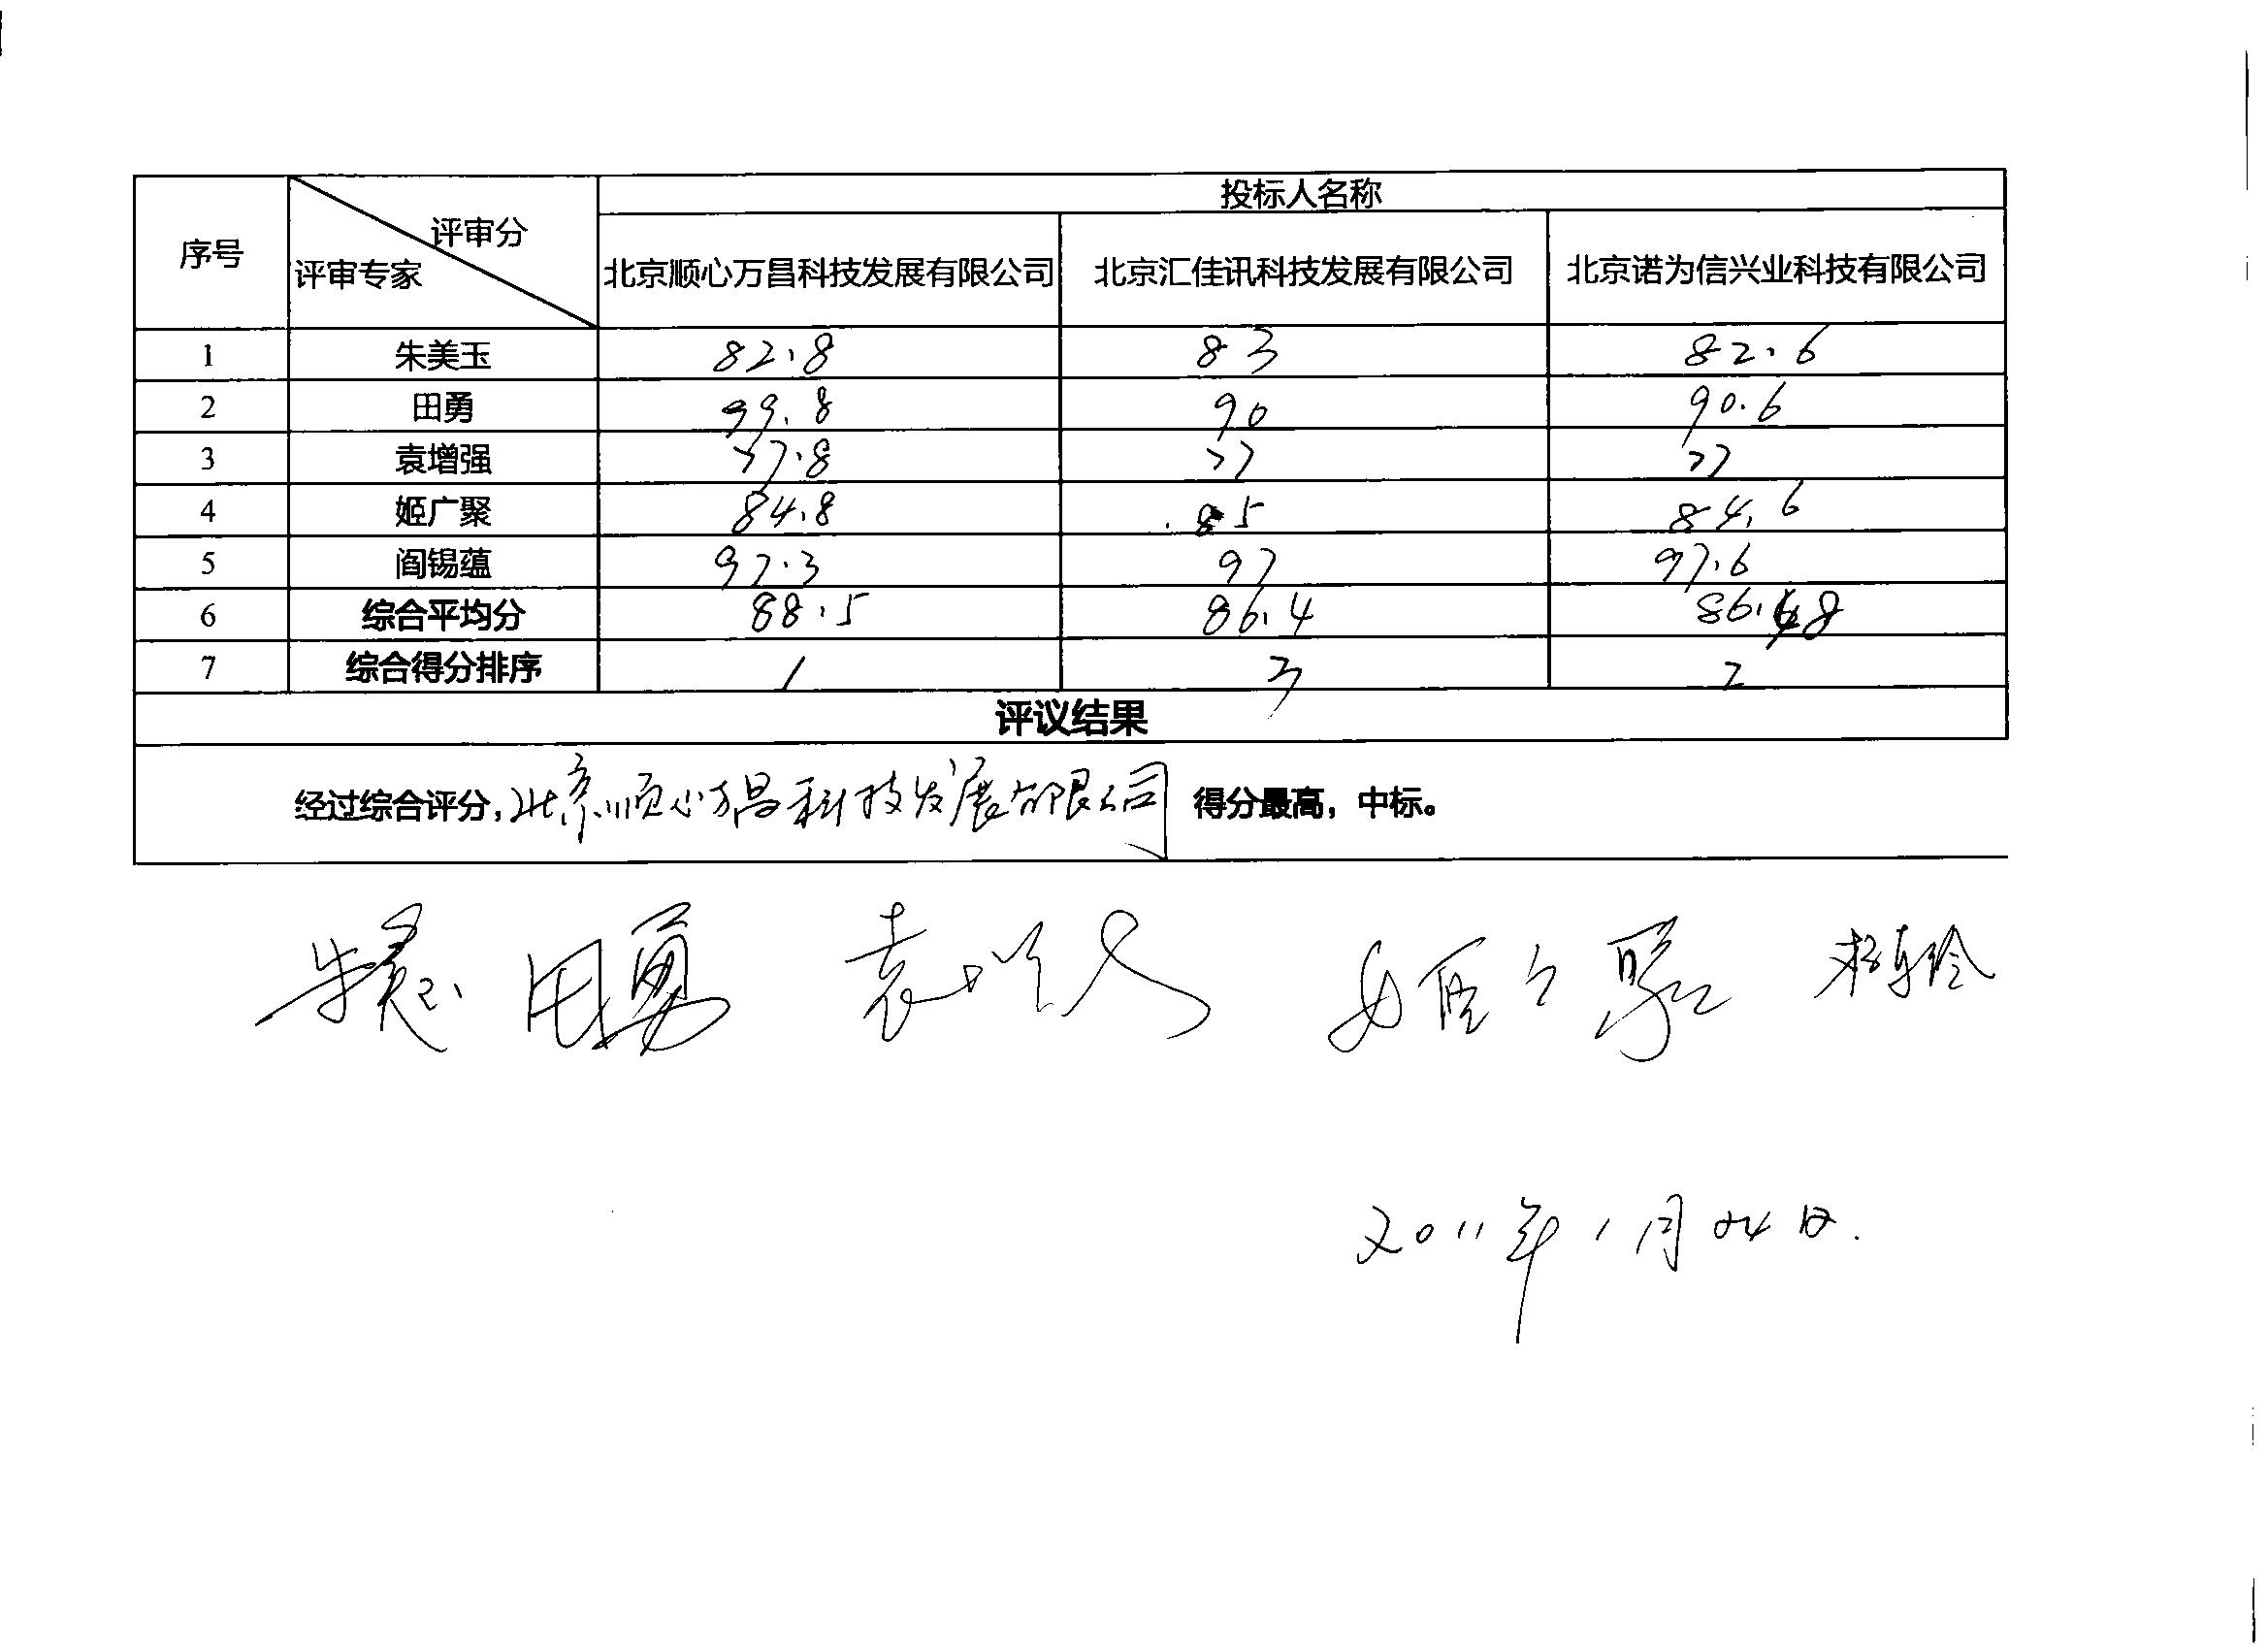 投标人名称
序号 评审分 评审专家 北京顺心万昌科技发展有限公司 北京汇佳讯科技发展有限公司 北京诺为信兴业科技有限公司
1 朱美玉 82.8 83 82.6
2 田勇 99.8 90 90.6
3 袁增强 77.8 77 77
4 姬广聚 84.8 85 84.6
5 阎锡蕴 97.3 97 97.6
6 综合平均分 88.5 86.4 86.48
7 综合得分排序 1 3 2
评议结果
经过综合评分,北京顺心万昌科技发展有限公司 得分最高，中标。
朱美玉 田勇 袁增强 姬广聚
2011年1月24日.